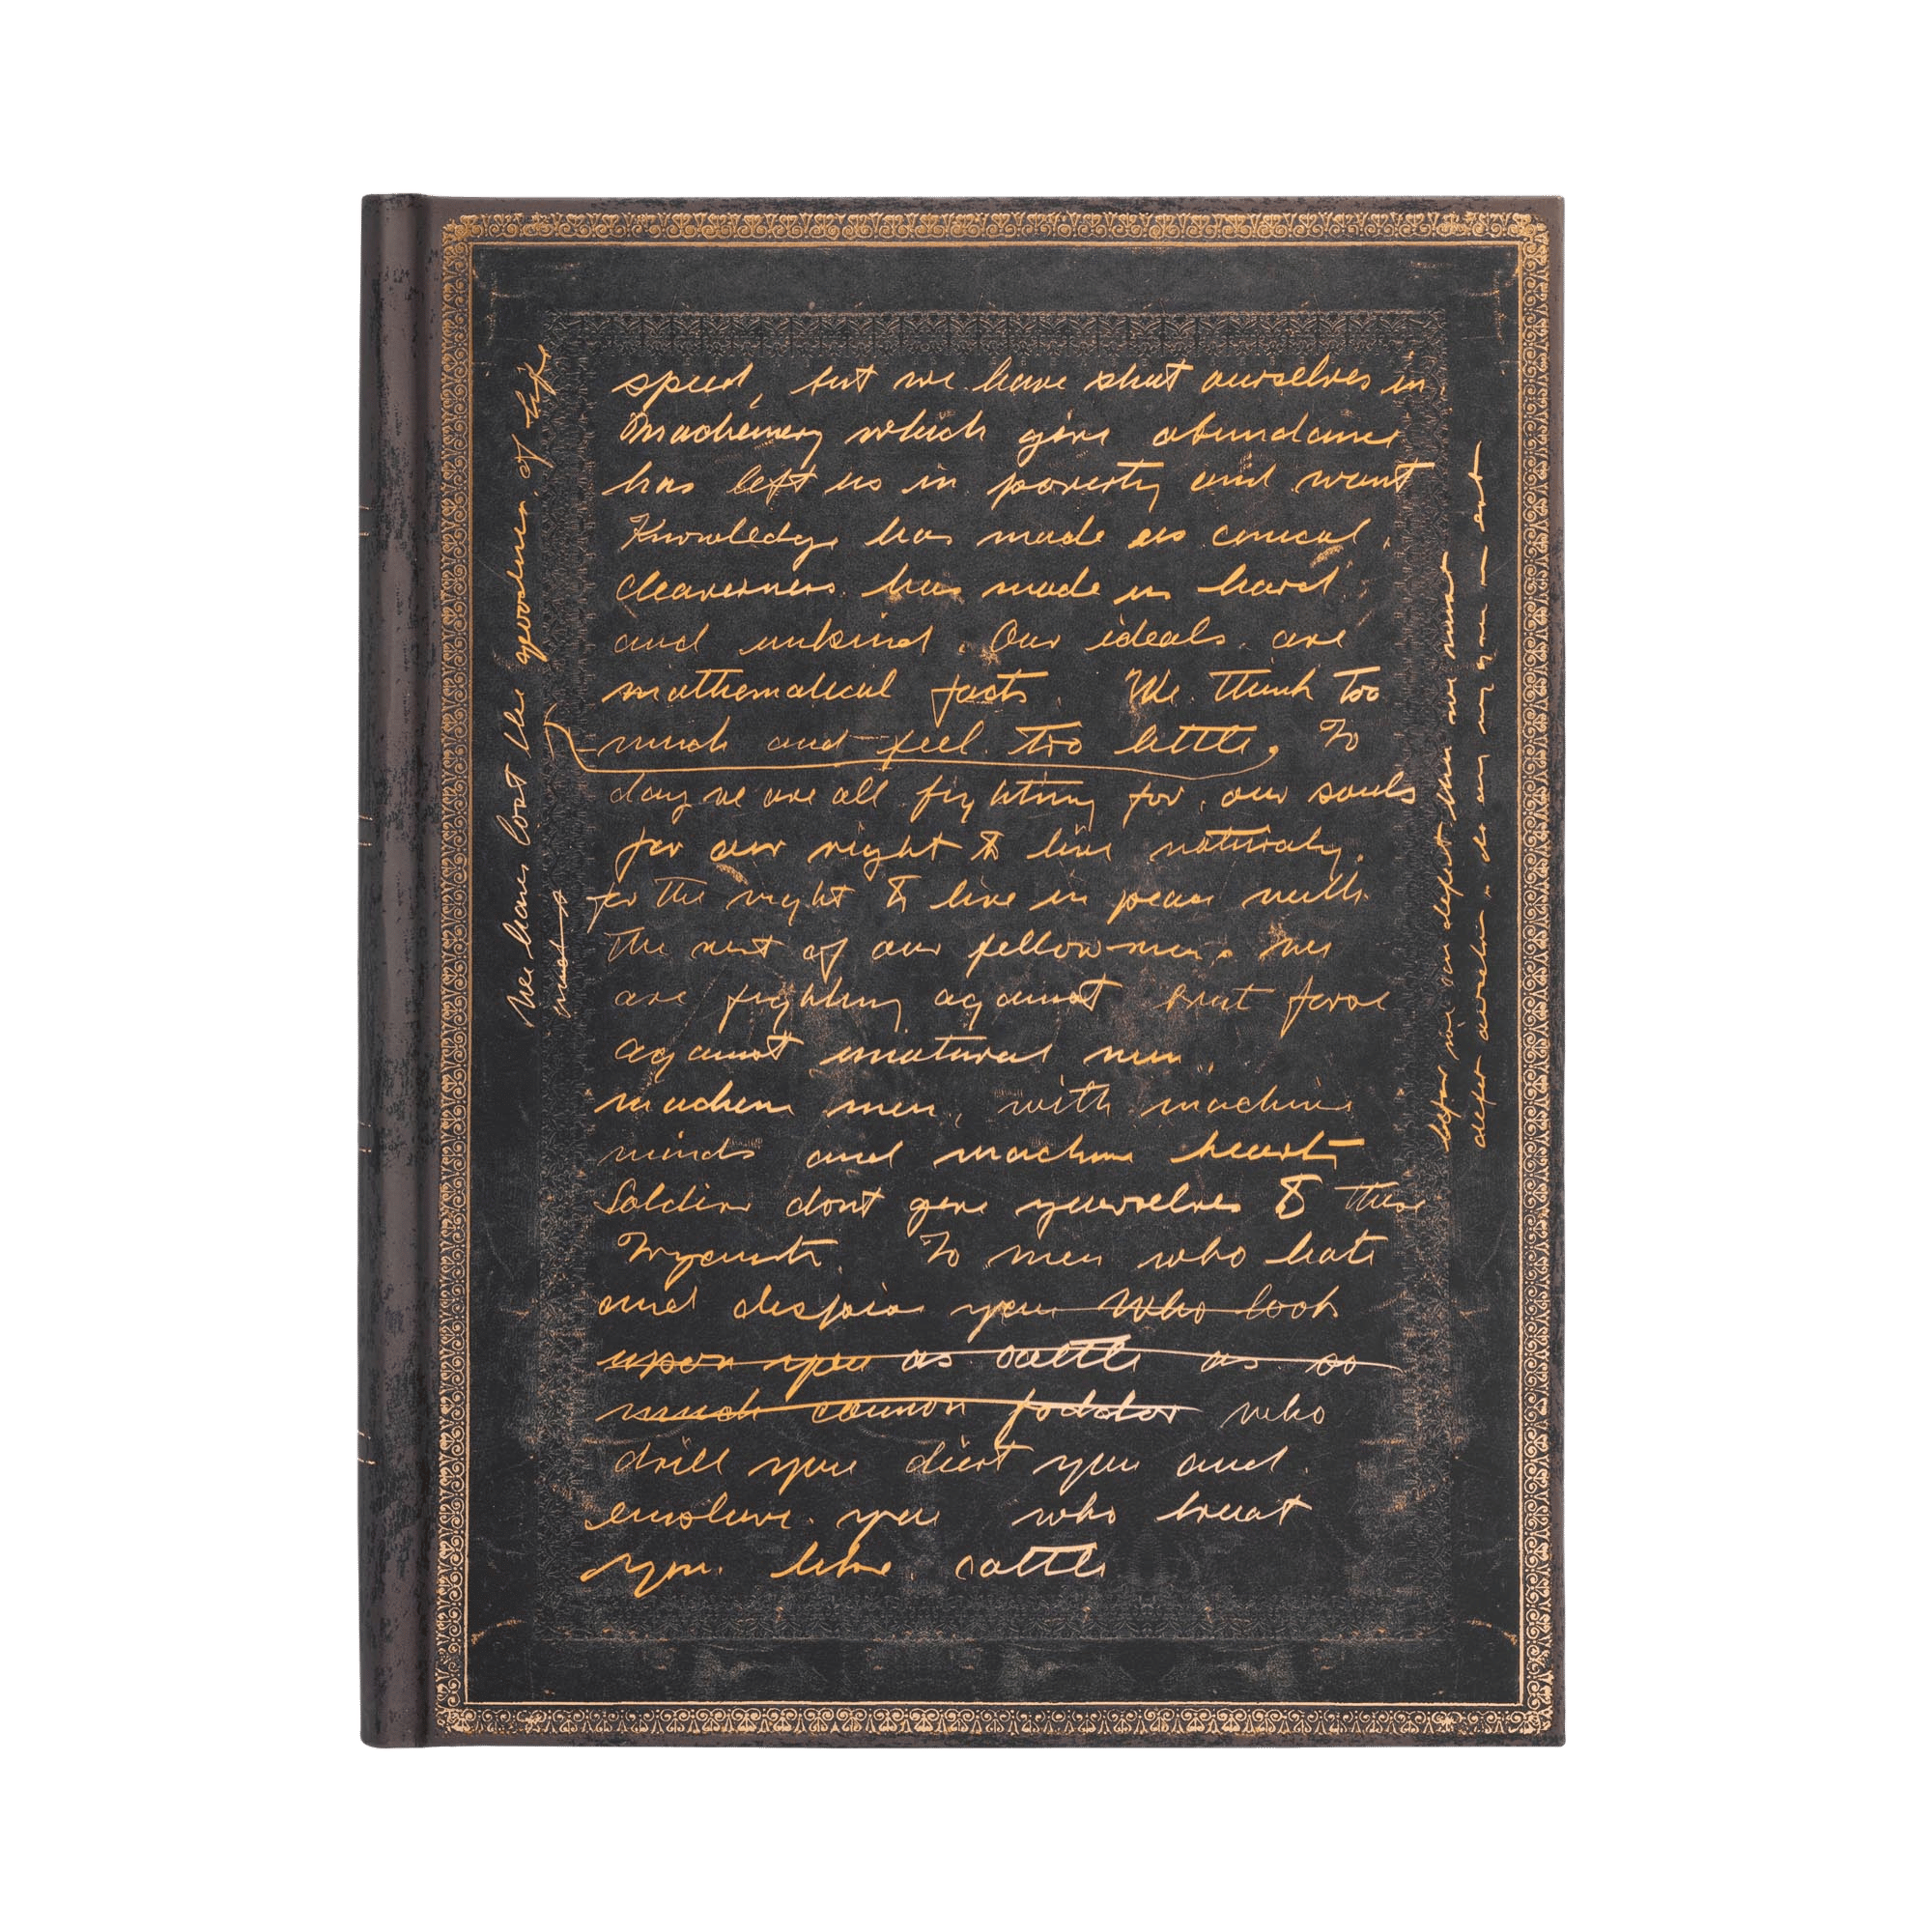 speed, but we have shut ourselves in.
Machinery which give abundance
has left us in poverty and want
Knowledge has made us cynical,
cleaverness has made us hard
and unkind. Our ideals are
mathematical facts. We think too
much and feel too little. To
day we are all fighting for our souls
for our right to live naturaly.
for the right to live in peace with
the rest of our fellow men. We
are fighting against brut force
against unatural men.
machine men, with machine
minds and machine hearts
Soldiers dont give yourselves to these
To men who hate
and despise you who look
upon you as cattle as so
much cannon foddor who
drill you diert you and
enslave you who treat
you like cattle
We have lost the goodness of life